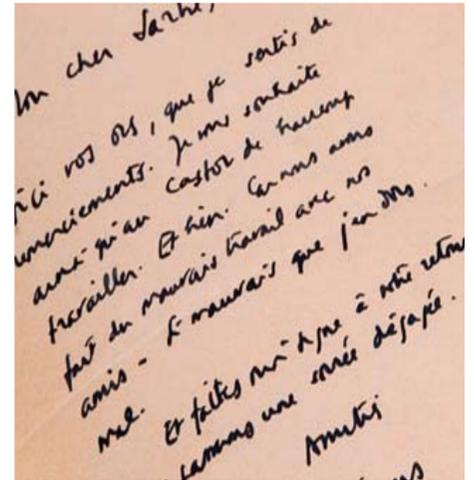 on cher Sartre,
ici vos        , que je          de
emerciements. Je vous souhaite
ainsi qu'au Castor de beaucoup
travailler. Et bien. Car nous avons
fait du mauvais travail avec nos
amis - Si mauvais que j'en dors
mal.
Et faites moi signe à votre retou
       une soirée dégagée.
Amitiés